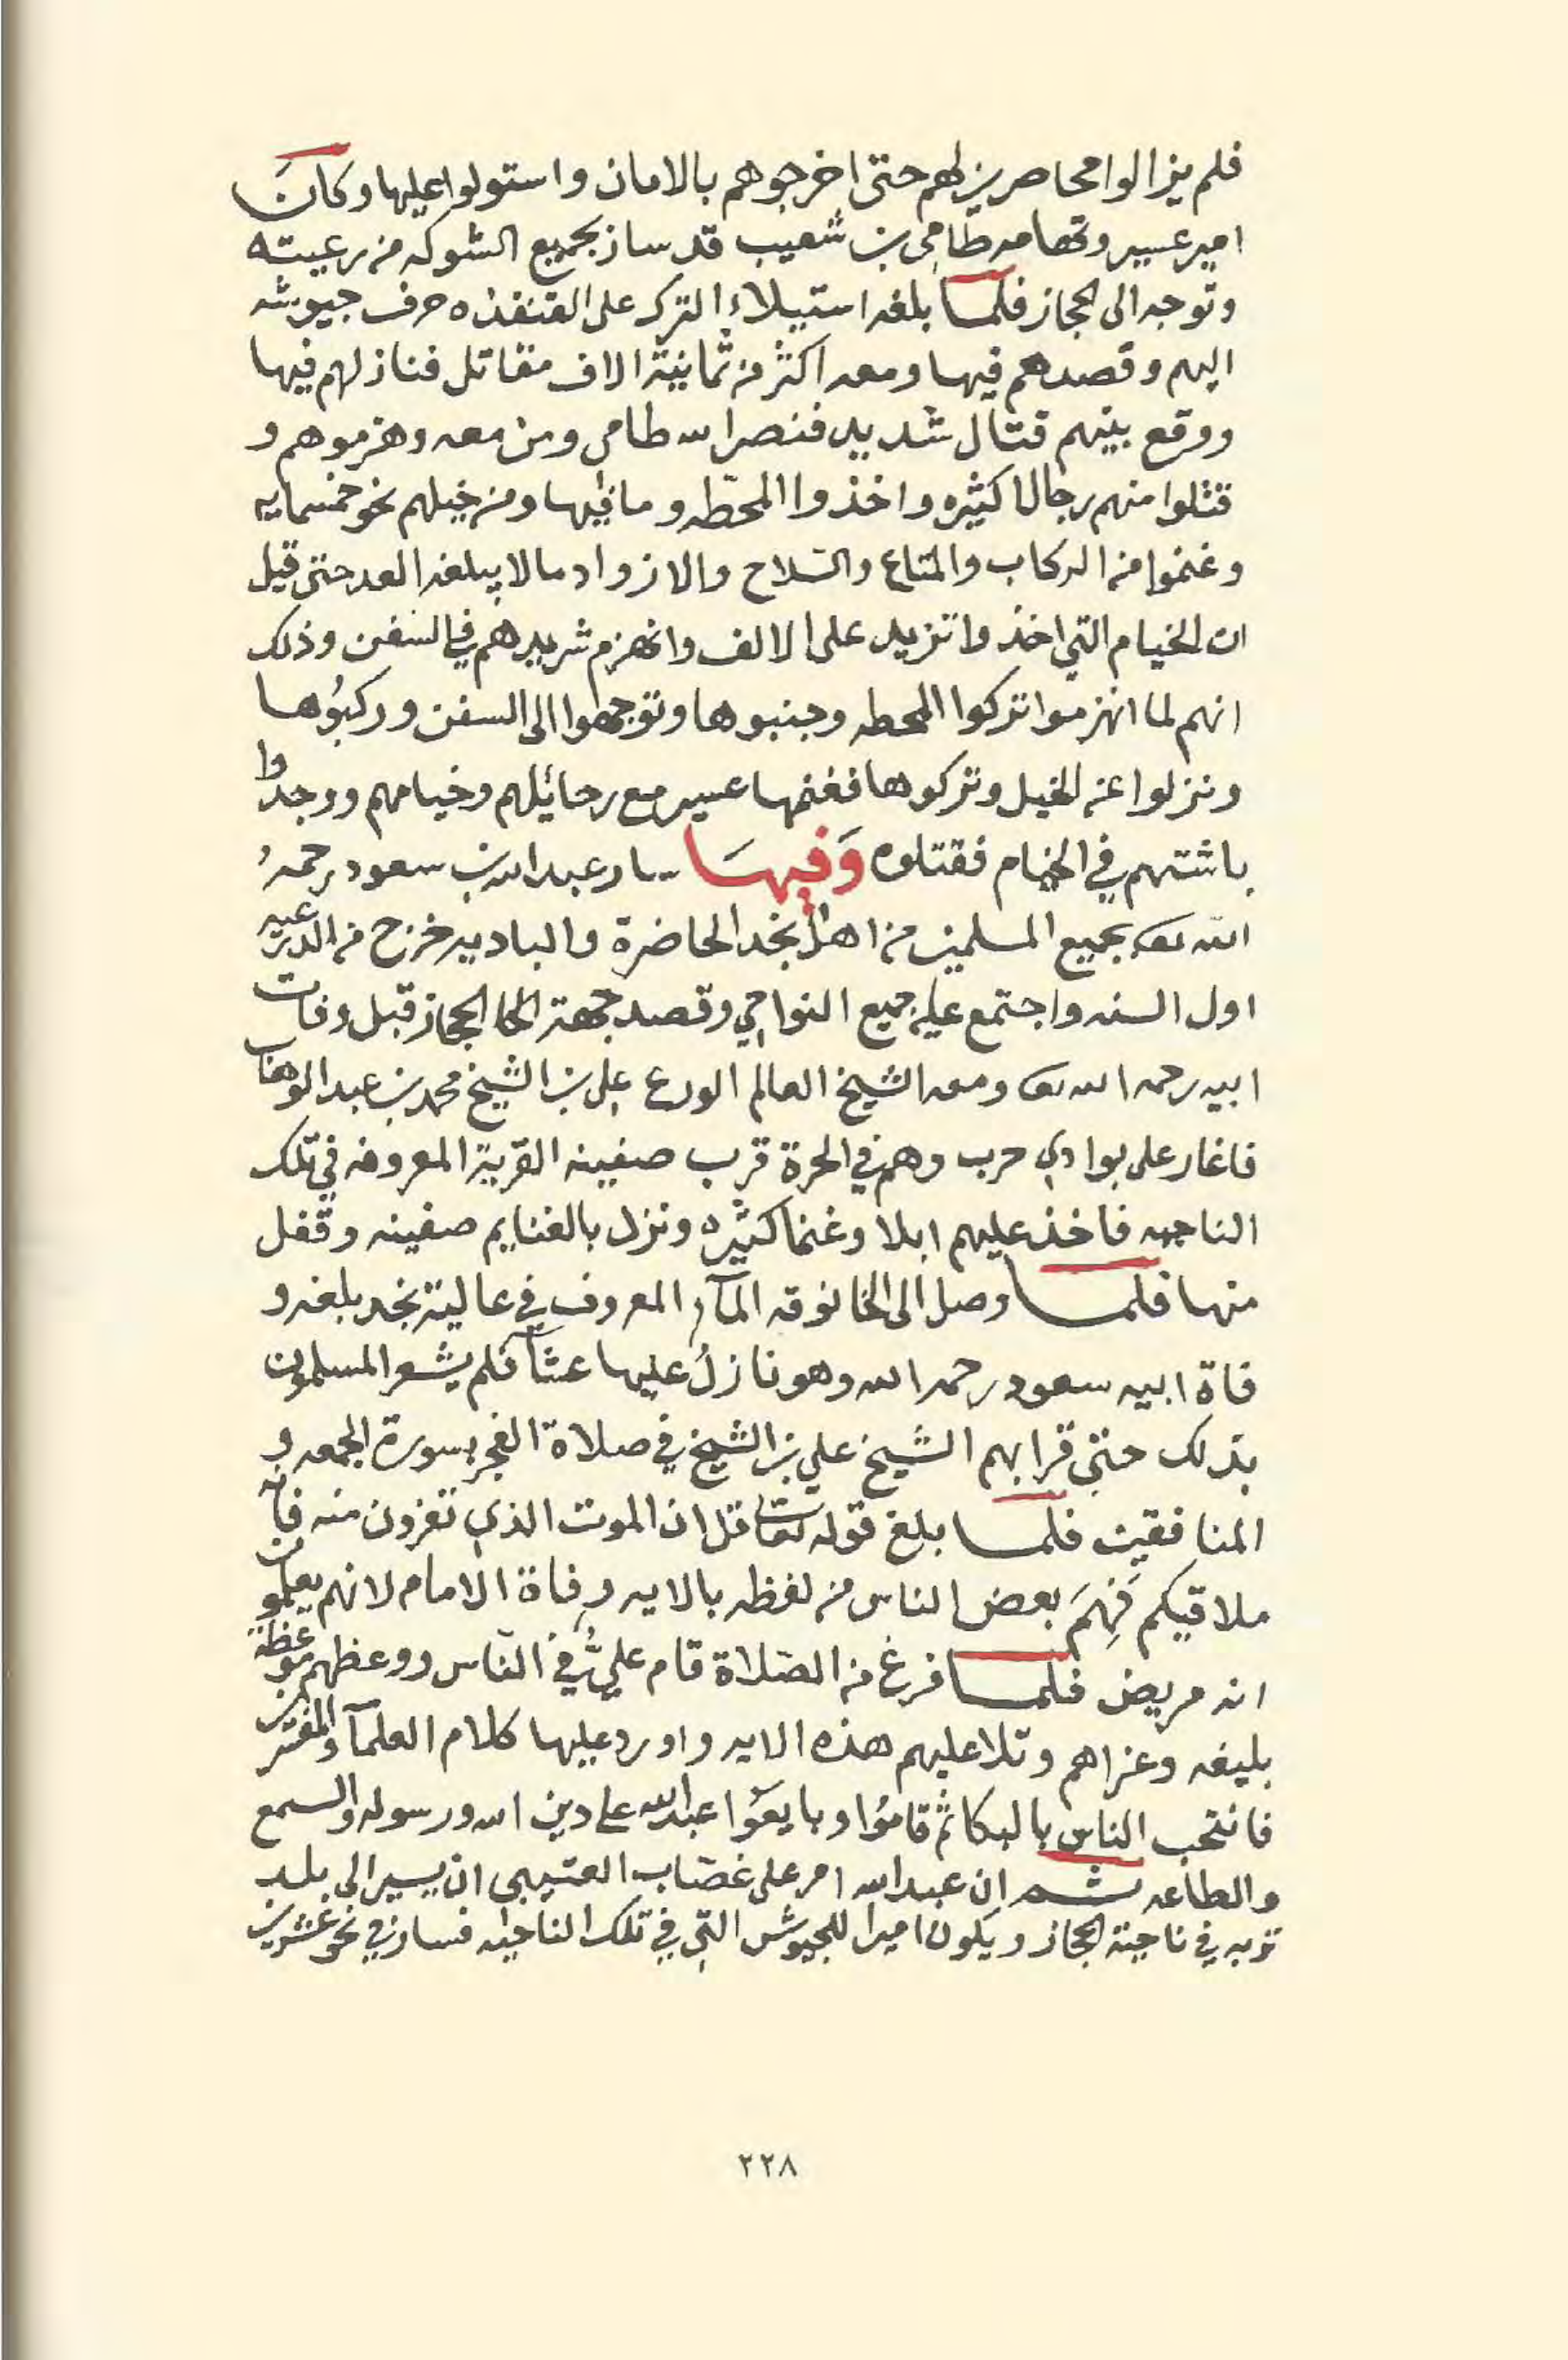 فلم يزالوا محاصرين لهم حتى اخرجوهم بالامان واستولوا عليها وكانَ
امير عسير وتهامه طامي بن شعيب قد سار بجميع الشوكه من رعيته
وتوجه الى الحجاز فلما بلغه استيلاء الترك على القنفذه صرف جيوشه
اليهم وقصدهم فيها ومعه اكثر من ثمانية الاف مقاتل فنازلهم فيها
ووقع بينهم قتال شديد فنصر الله طامي ومن معه وهزموهم و
قتلوا منهم رجالا كثيره واخذوا المحطّه وما فيها ومن خيلهم نحو خمسمايه
وغنموا من الركاب والمتاع والسّلاح والازواد مالا يبلغه العد حتى قيل
ان الخيام التي اخذوا تزيد على الالف وانهزم شريدهم في السفن وذلك
انهم لما انهزموا تركوا المحطه وجنبوها وتوجهوا الى السفن وركبُوها
ونزلوا عن الخيل وتركوها فغنمها عسير مع رحائلهم وخيامهم ووجدوا
باشتهم في الخيام فقتلوه وَفيهَا سار عبدالله بن سعود رحمهُ
الله تعالى بجميع المسلمين من اهل نجد الحاضرة والباديه خرج من الدرعيه
اول السنه واجتمع عليه جميع النواحي وقصد جهة الحجاز قبل وفات
ابيه رحمه الله تعالى ومعه الشيخ العالم الورع علي بن الشيخ محمد بن عبد الوهاب
فاغار على بوادي حرب وهم في الحرة قرب صفينه القرّية المعروفه في تلك
الناحيه فاخذ عليهم ابلا وغنما كثيره ونزل بالغنايم صفينه وقفل
منها فلما وصل الى الخانوقه المآء المعروف في عالية نجد بلغه و
فاة ابيه سعود رحمه الله وهو نازلُ عليها عشآ فلم يشعر المسلمون
بذلك حتى قرا بهم الشيخ علي بن الشيخ في صلاة الفجر بسورة الجمعه و
المنافقين فلما بلغ قوله تعالى قل ان الموت الذي تفرون منه فانه
ملاقيكم فَهِمَ بعض الناس من لفظه بالايه وفاة الامام لانهم يعلمون
انه مريض فلما فرغ من الصّلاة قام عليُّ في النّاس ووعظهم موعظة
بليغه وعزاهم وتلا عليهم هذه الايه واورد عليها كلام العلمآ والمفسرين
فانتحب الناس بالبكا ثم قامُوا وبايعوا عبدالله على دين الله ورسوله والسمع
والطاعه ثم ان عبدالله امر على غصّاب العتيبي ان يسير الى بلد
تربه في ناحية الحجاز ويكون اميرا للجيوش التي في تلك الناحيه فسار في نحو عشرين
٢٢٨